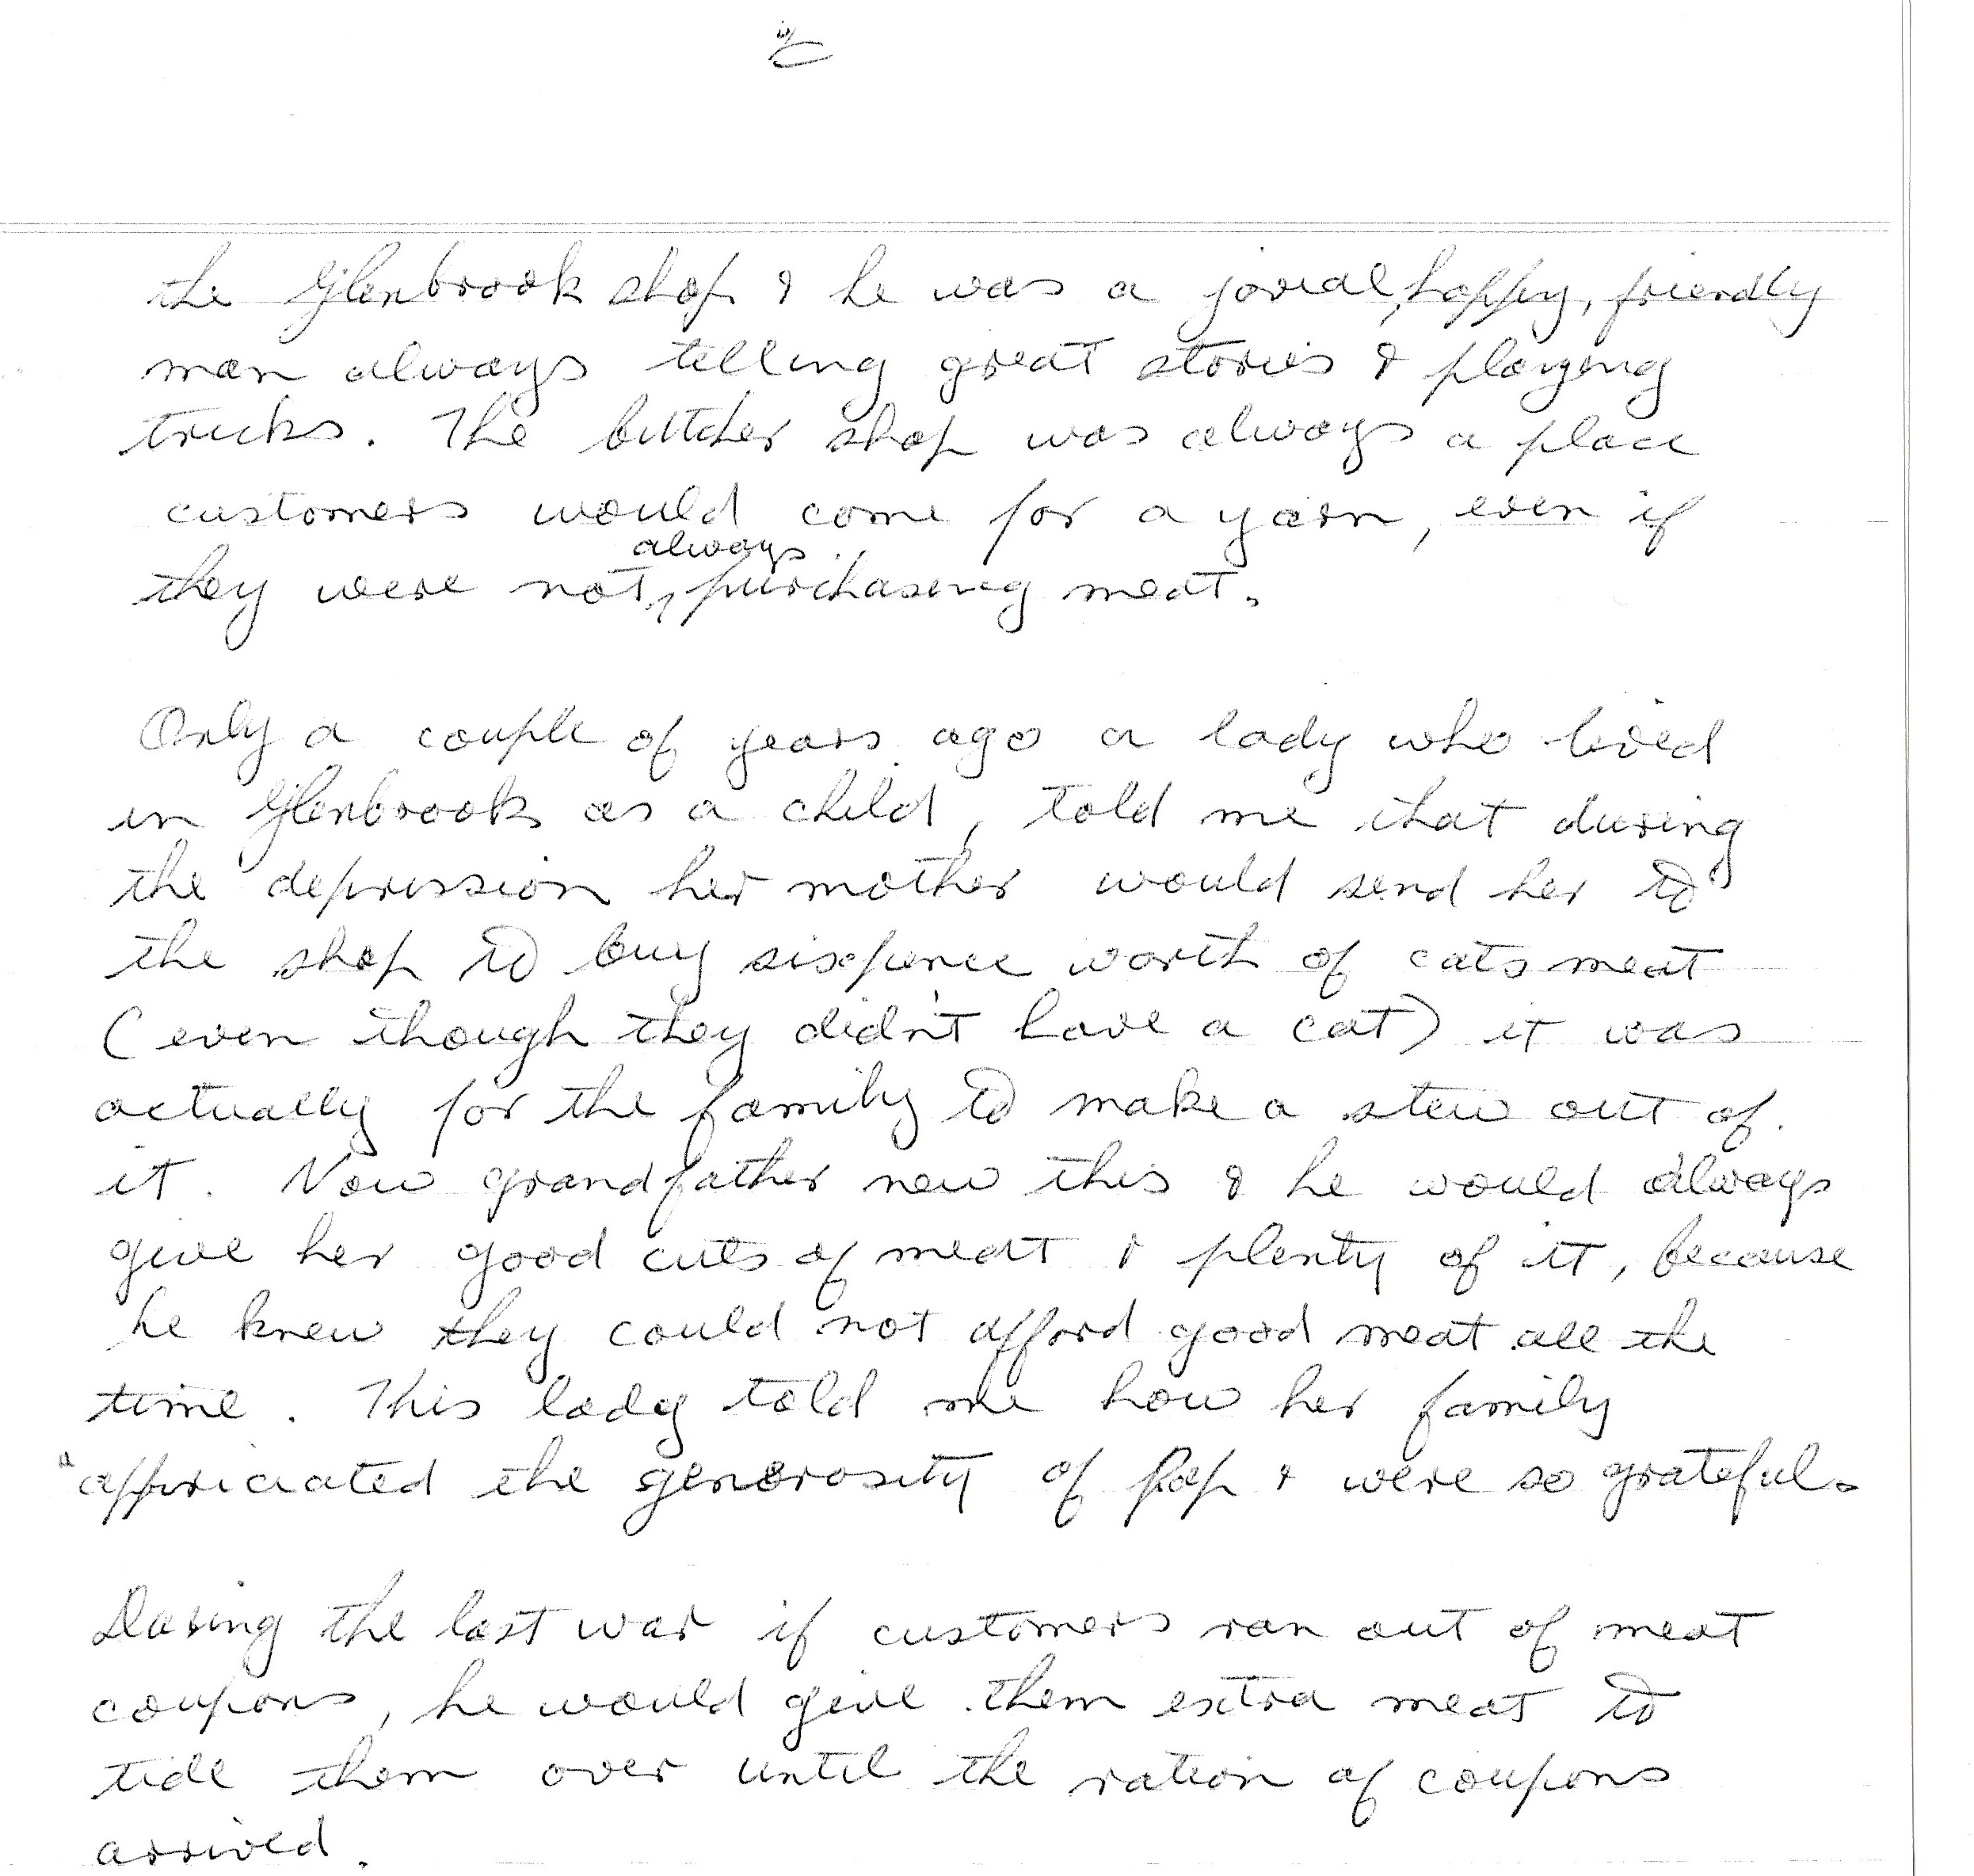 the Glenbrook shop & he was a jovial, happy, friendly
man always telling great stories & playing
tricks. The butcher shop was always a place
customers would come for a yarn, even if
always
they were not purchasing meat.
Only a couple of years ago a lady who lived
in Glenbrook as a child, told me that during
the depression her mother would send her to
the shop to buy sixpence worth of cats meat
(even though they didn't have a cat) it was
actually for the family to make a stew out of
it. Now grandfather new this & he would always
give her good cuts of meat & plenty of it, because
he knew they could not afford good meat all the
time. This lady told me how her family
appriciated the generosity of Pop & were so grateful.
During the last war if customers ran out of meat
coupons, he would give them extra meat to
tide them over until the ration of coupons
arrived.